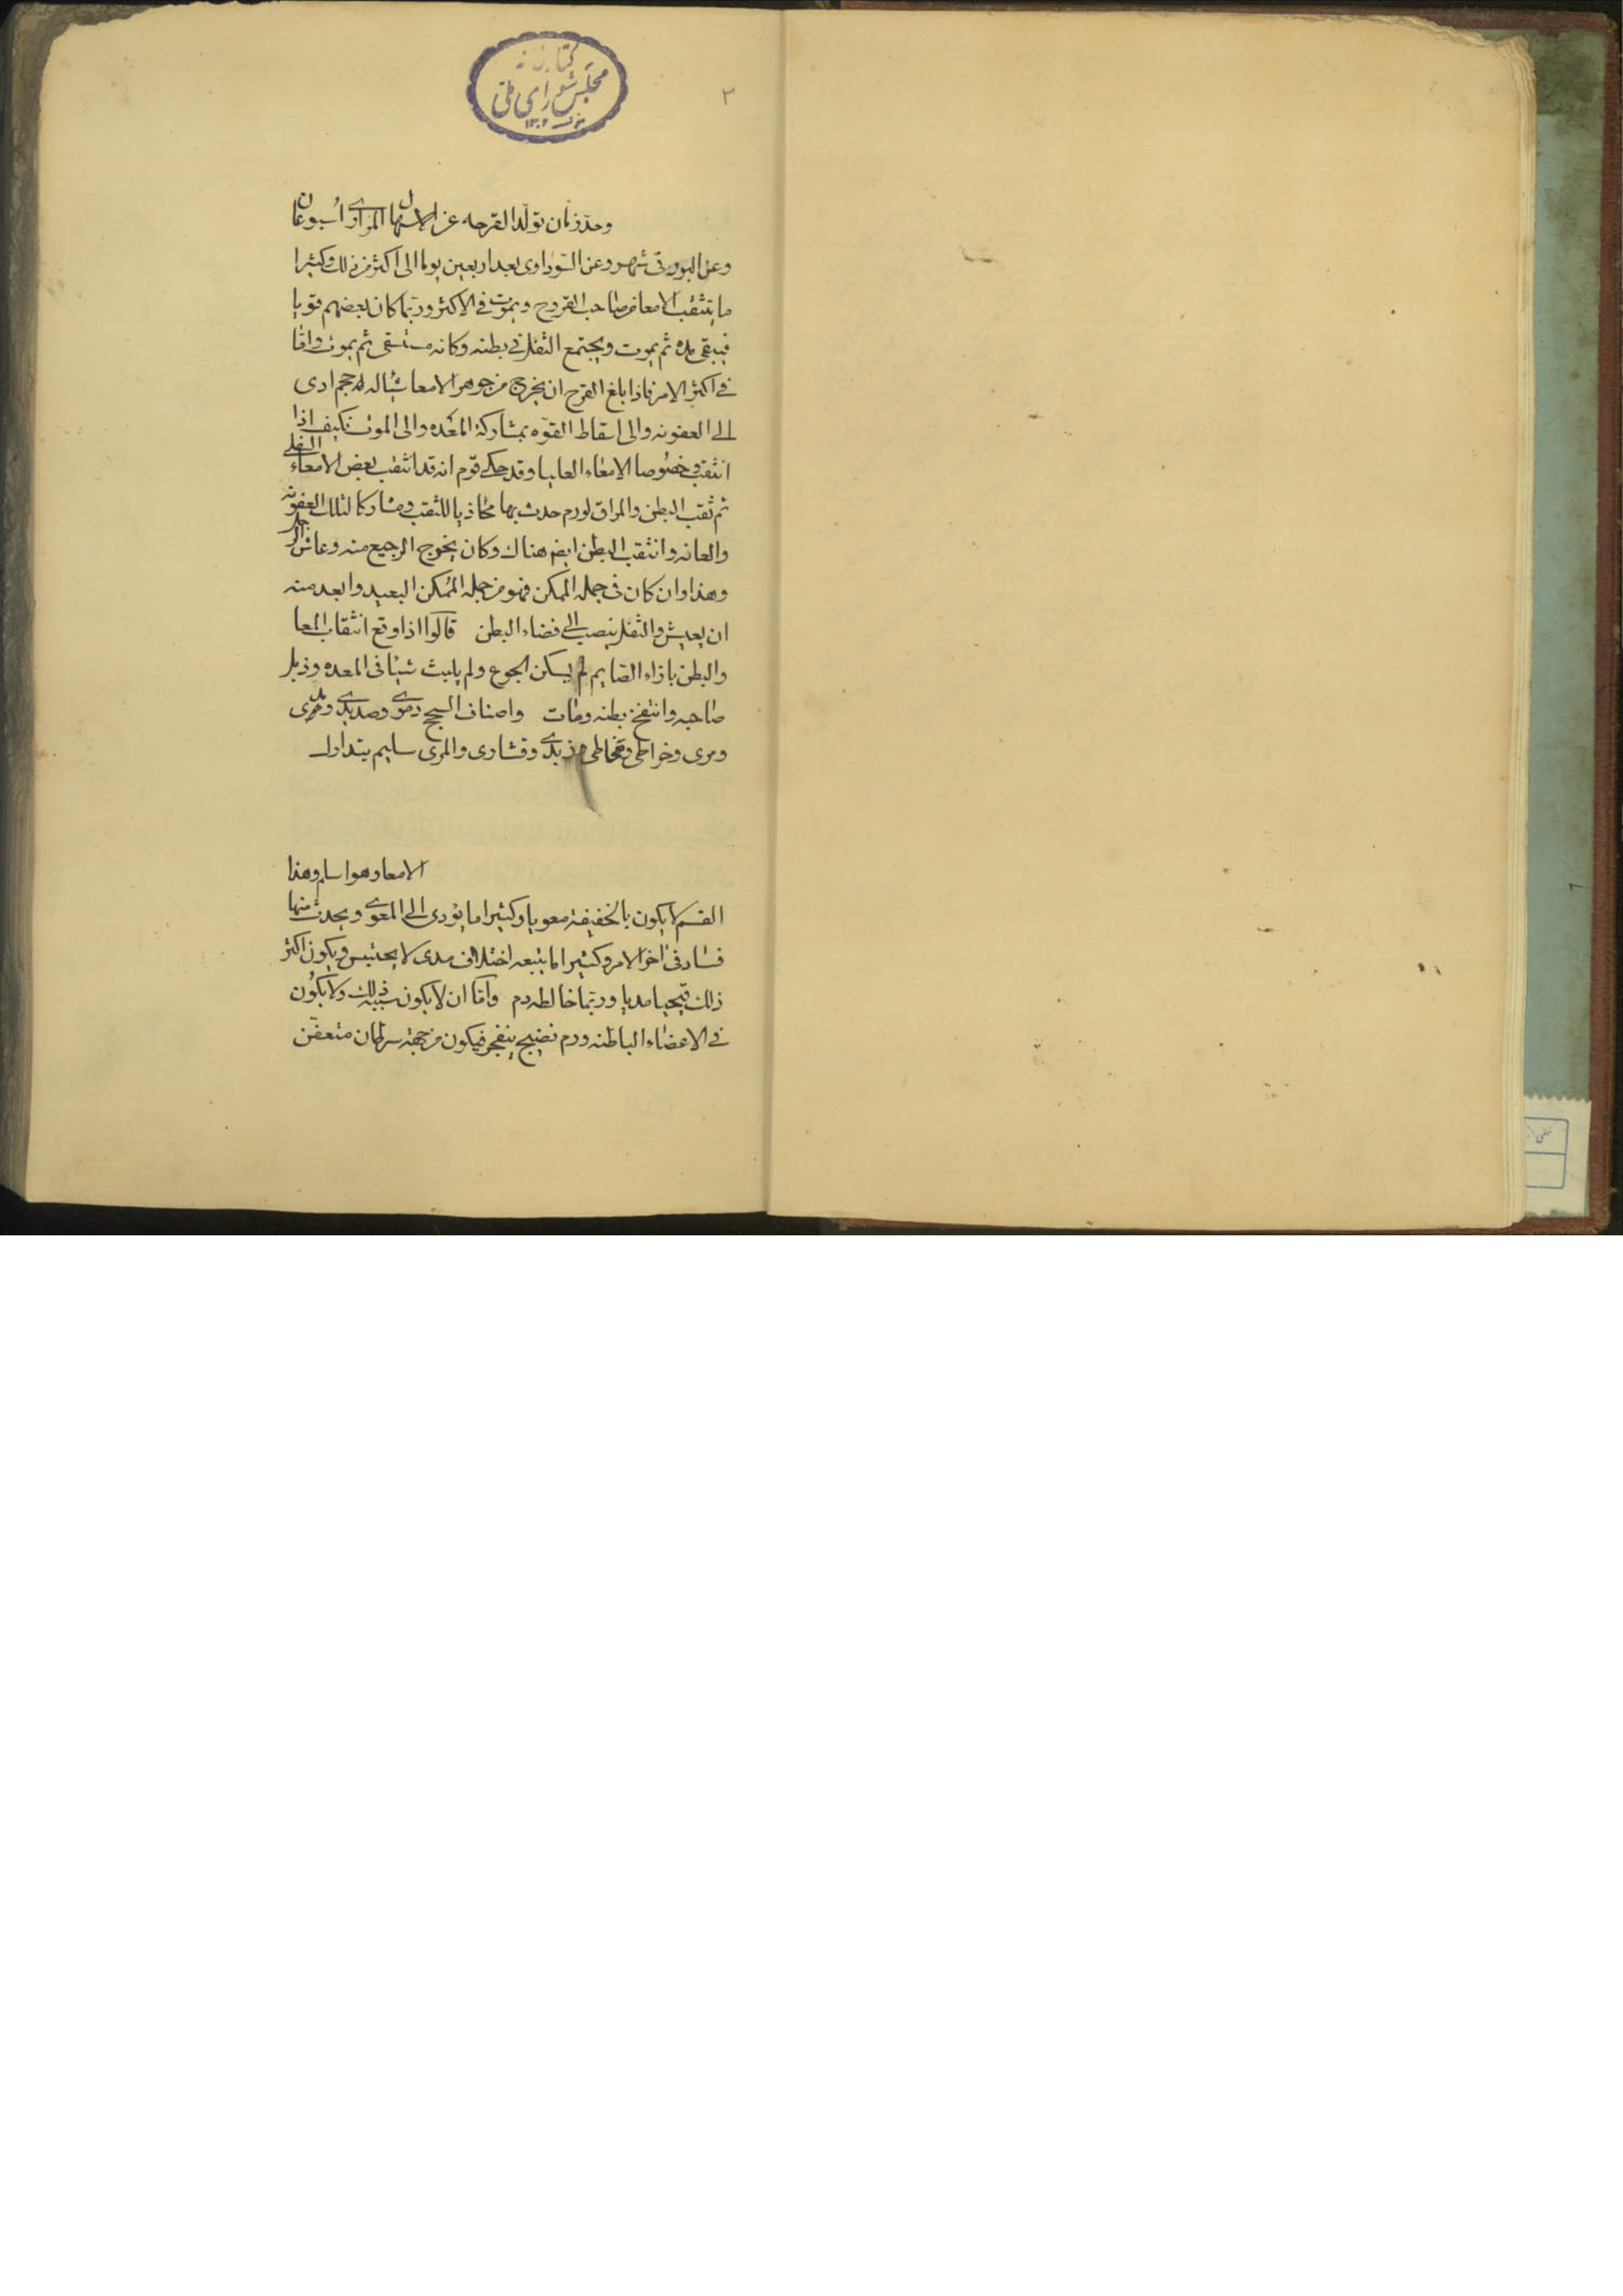 کتابخانه
مجلس شورای ملی
۳
وحد زمان تولد القرحه عن الاسهال المراری اسبوعان
وعن البورقی شهر وعن السوداوی بعد اربعین یوما الی اکثر من ذلک وکثیرا
ما ینثقب الامعا من صاحب القروح ویموت فی الاکثر وربما کان بعضهم قویا
فیبقی مده ثم یموت ویجتمع الثفل فی بطنه وکانه مستسقی ثم یموت واما
فی اکثر الامر فاذا بلغ القرح ان یخرج من جوهر الامعا شیئا له حجم ادی
الی العفونه والی اسقاط القوه بمشارکة المعده والی الموت فکیف اذا
انثقب خصوصا الامعاء العلیا وقد حکی قوم انه قد انثقب بعض الامعاء السفلی
ثم ثقب البطن والمراق لورم حدث بها محاذیا للثقب ومشارکا لتلک العفونه
والعانه وانثقب البطن ایضا هناک وکان یخرج الرجیع منه وعاش الرجل
وهذا وان کان فی جمله الممکن فهو من جمله الممکن البعید وابعد منه
ان یعیش والثفل ینصب الی فضاء البطن قالوا اذا وقع انثقاب المعا
والبطن بازاء الصایم لم یسکن الجوع ولم یلبث شیئا فی المعده وذبل
صاحبه وانتفخ بطنه ومات واصناف السحج دموی وصدیدی ومدی
ومری وخراطی ومخاطی وزبدی وقشاری والمری سلیم یتدارک
الامعا وهو اسلم وهذا
القسم لا یکون بالحقیقة معویا وکثیرا ما یؤدی الی المعوی ویحدث منها
فساد فی اخر الامر وکثیرا ما یتبعه اختلاف مدی لا یحتبس ویکون اکثر
ذلک قیحیا مدیا وربما خالطه دم واما ان لا یکون سببه ذلک ولا یکون
فی الاعضاء الباطنه ورم نضیج ینفجر فیکون من جهة سرطان متعفن